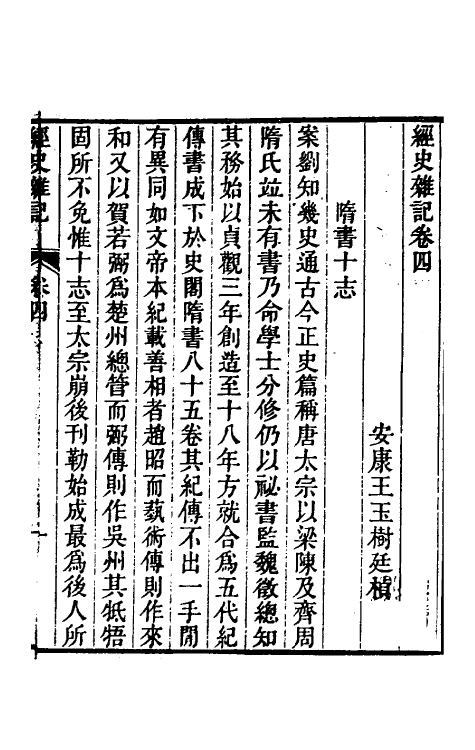 經史雜記卷四
安康王玉樹廷楨
隋書十志
案劉知幾史通古今正史篇稱唐太宗以梁陳及齊周
隋氏竝未有書乃命學士分修仍以祕書監魏徵總知
其務始以貞觀三年創造至十八年方就合爲五代紀
傳書成下於史閣隋書八十五卷其紀傳不出一手閒
有異同如文帝本紀載善相者趙昭而蓺術傳則作來
和又以賀若弼爲楚州總管而弼傳則作吳州其牴牾
固所不免惟十志至太宗崩後刊勒始成最爲後人所
經史雜記 卷四 一